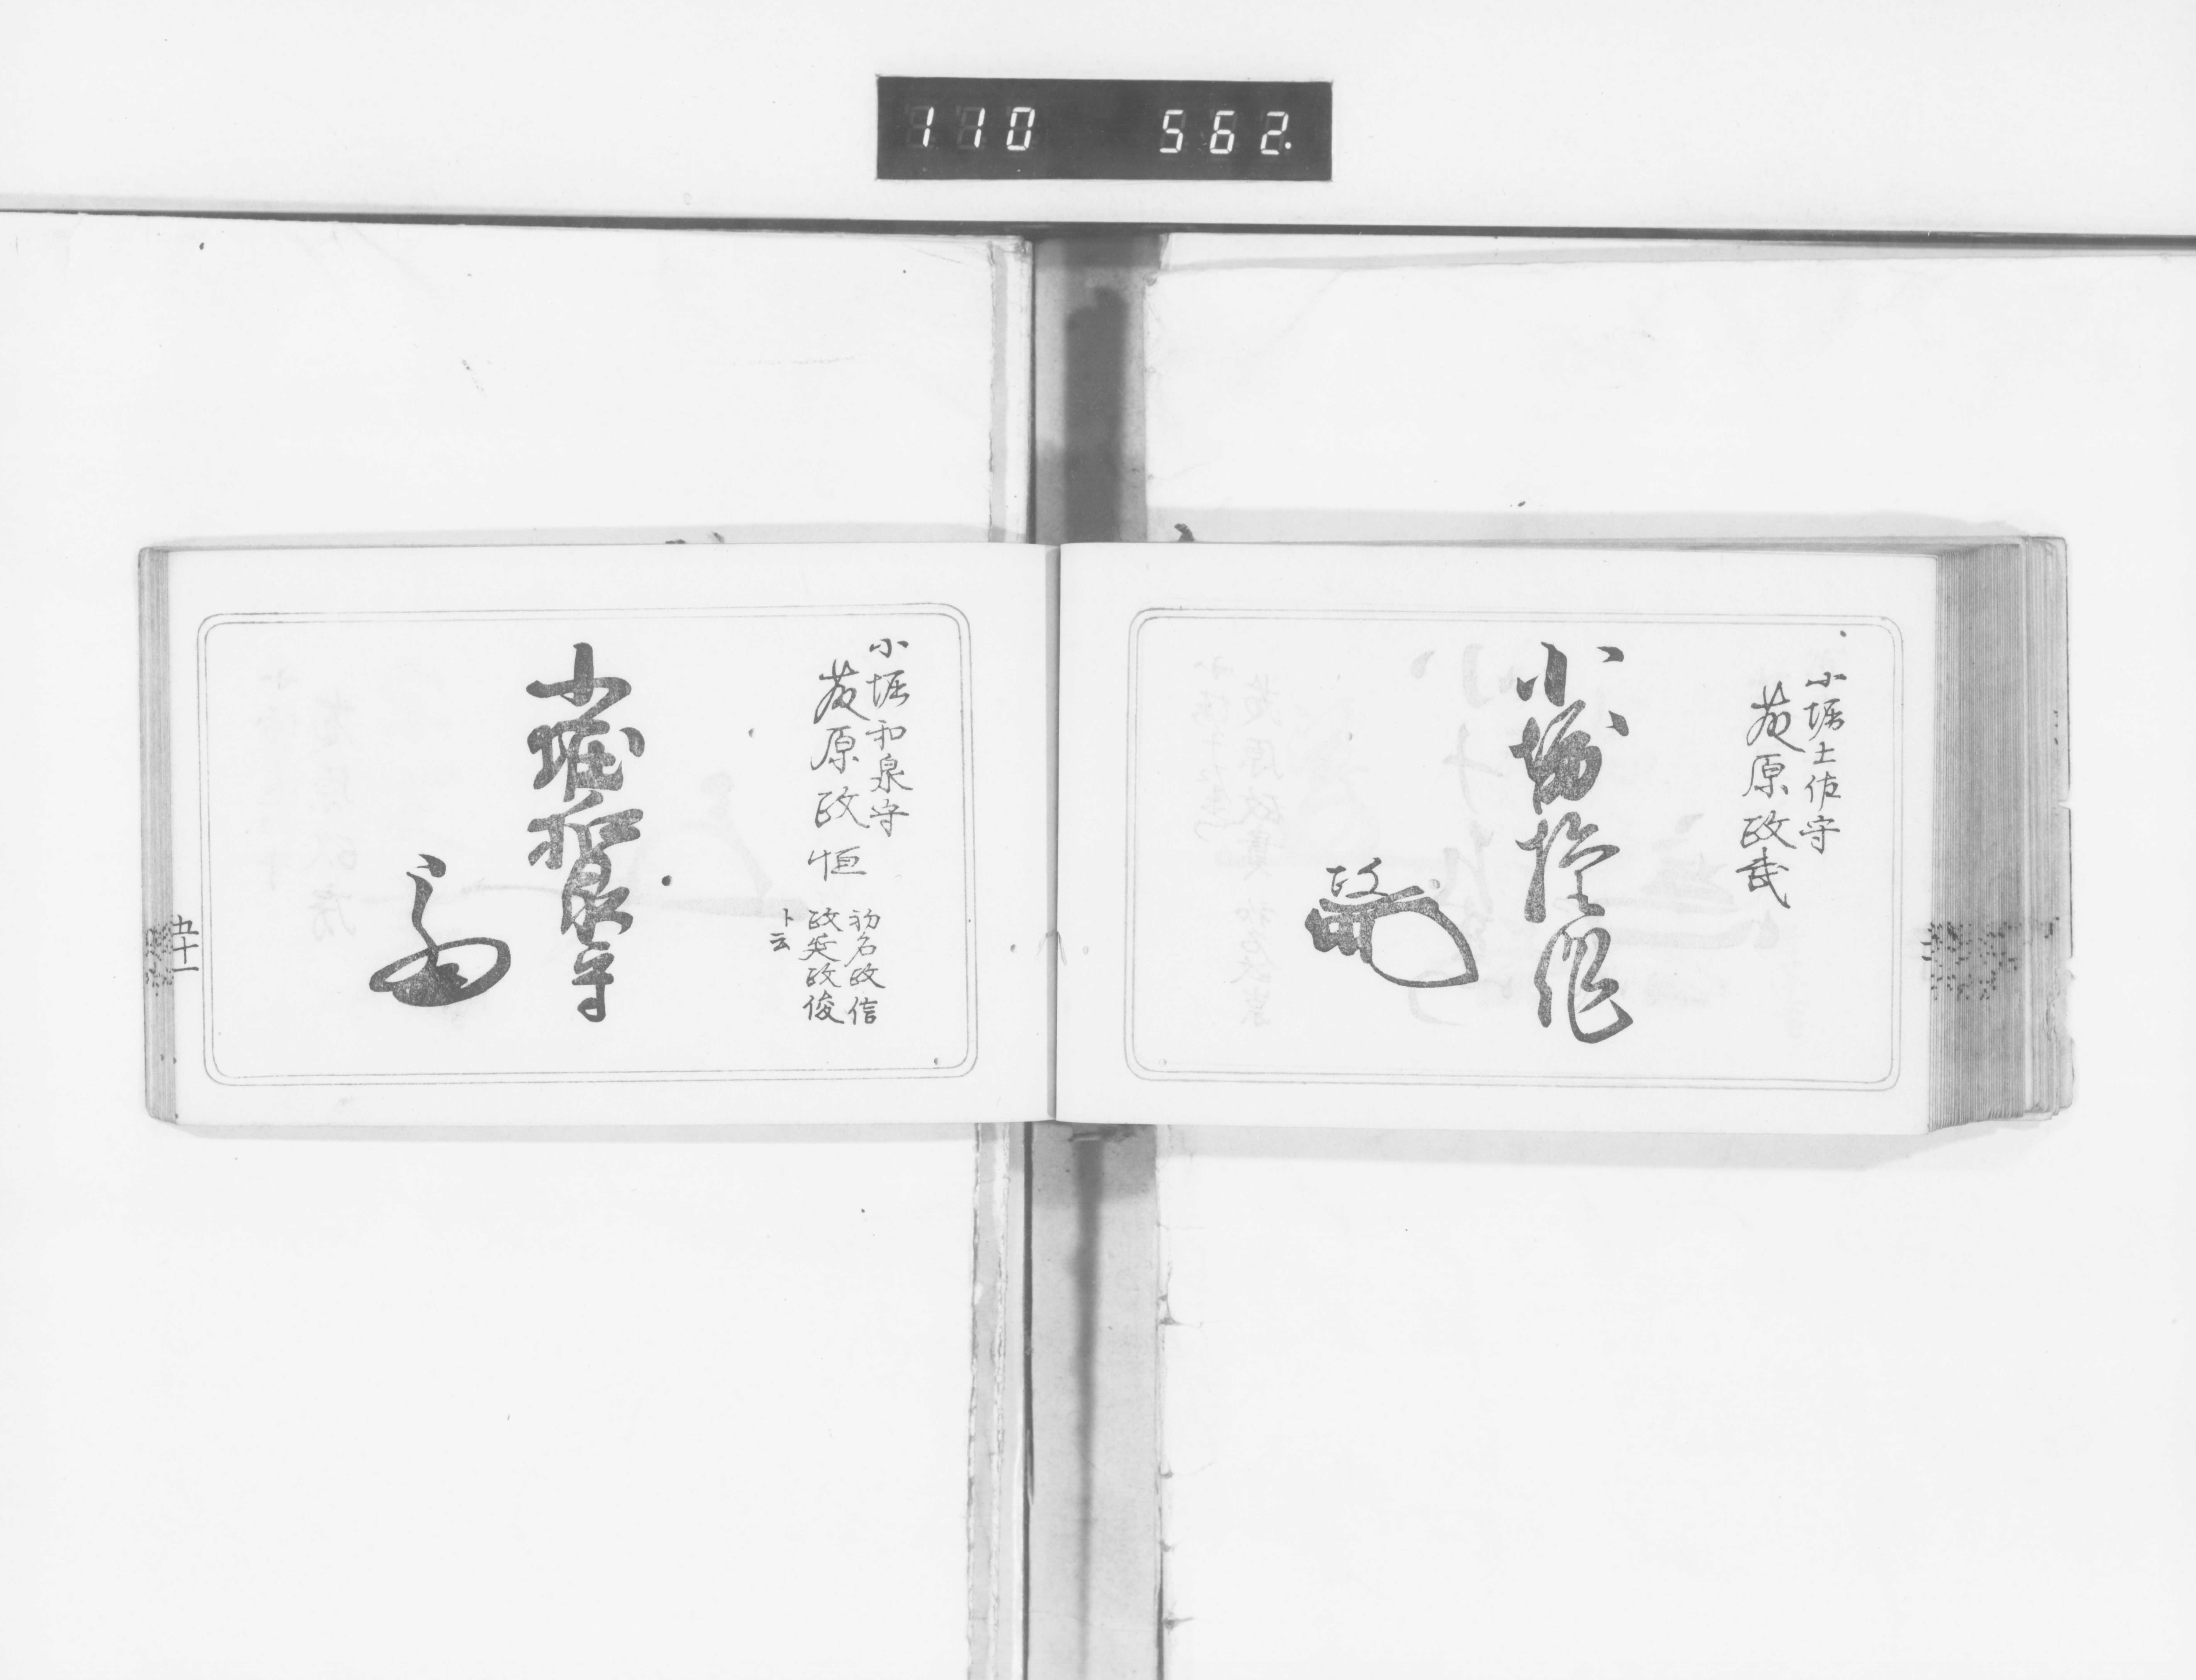 110 562.
小堀土佐守
藤原政武
小堀権佐
政
小堀和泉守
藤原政恒
初名政信
政英政俊
ト云
小堀和泉守
五十一